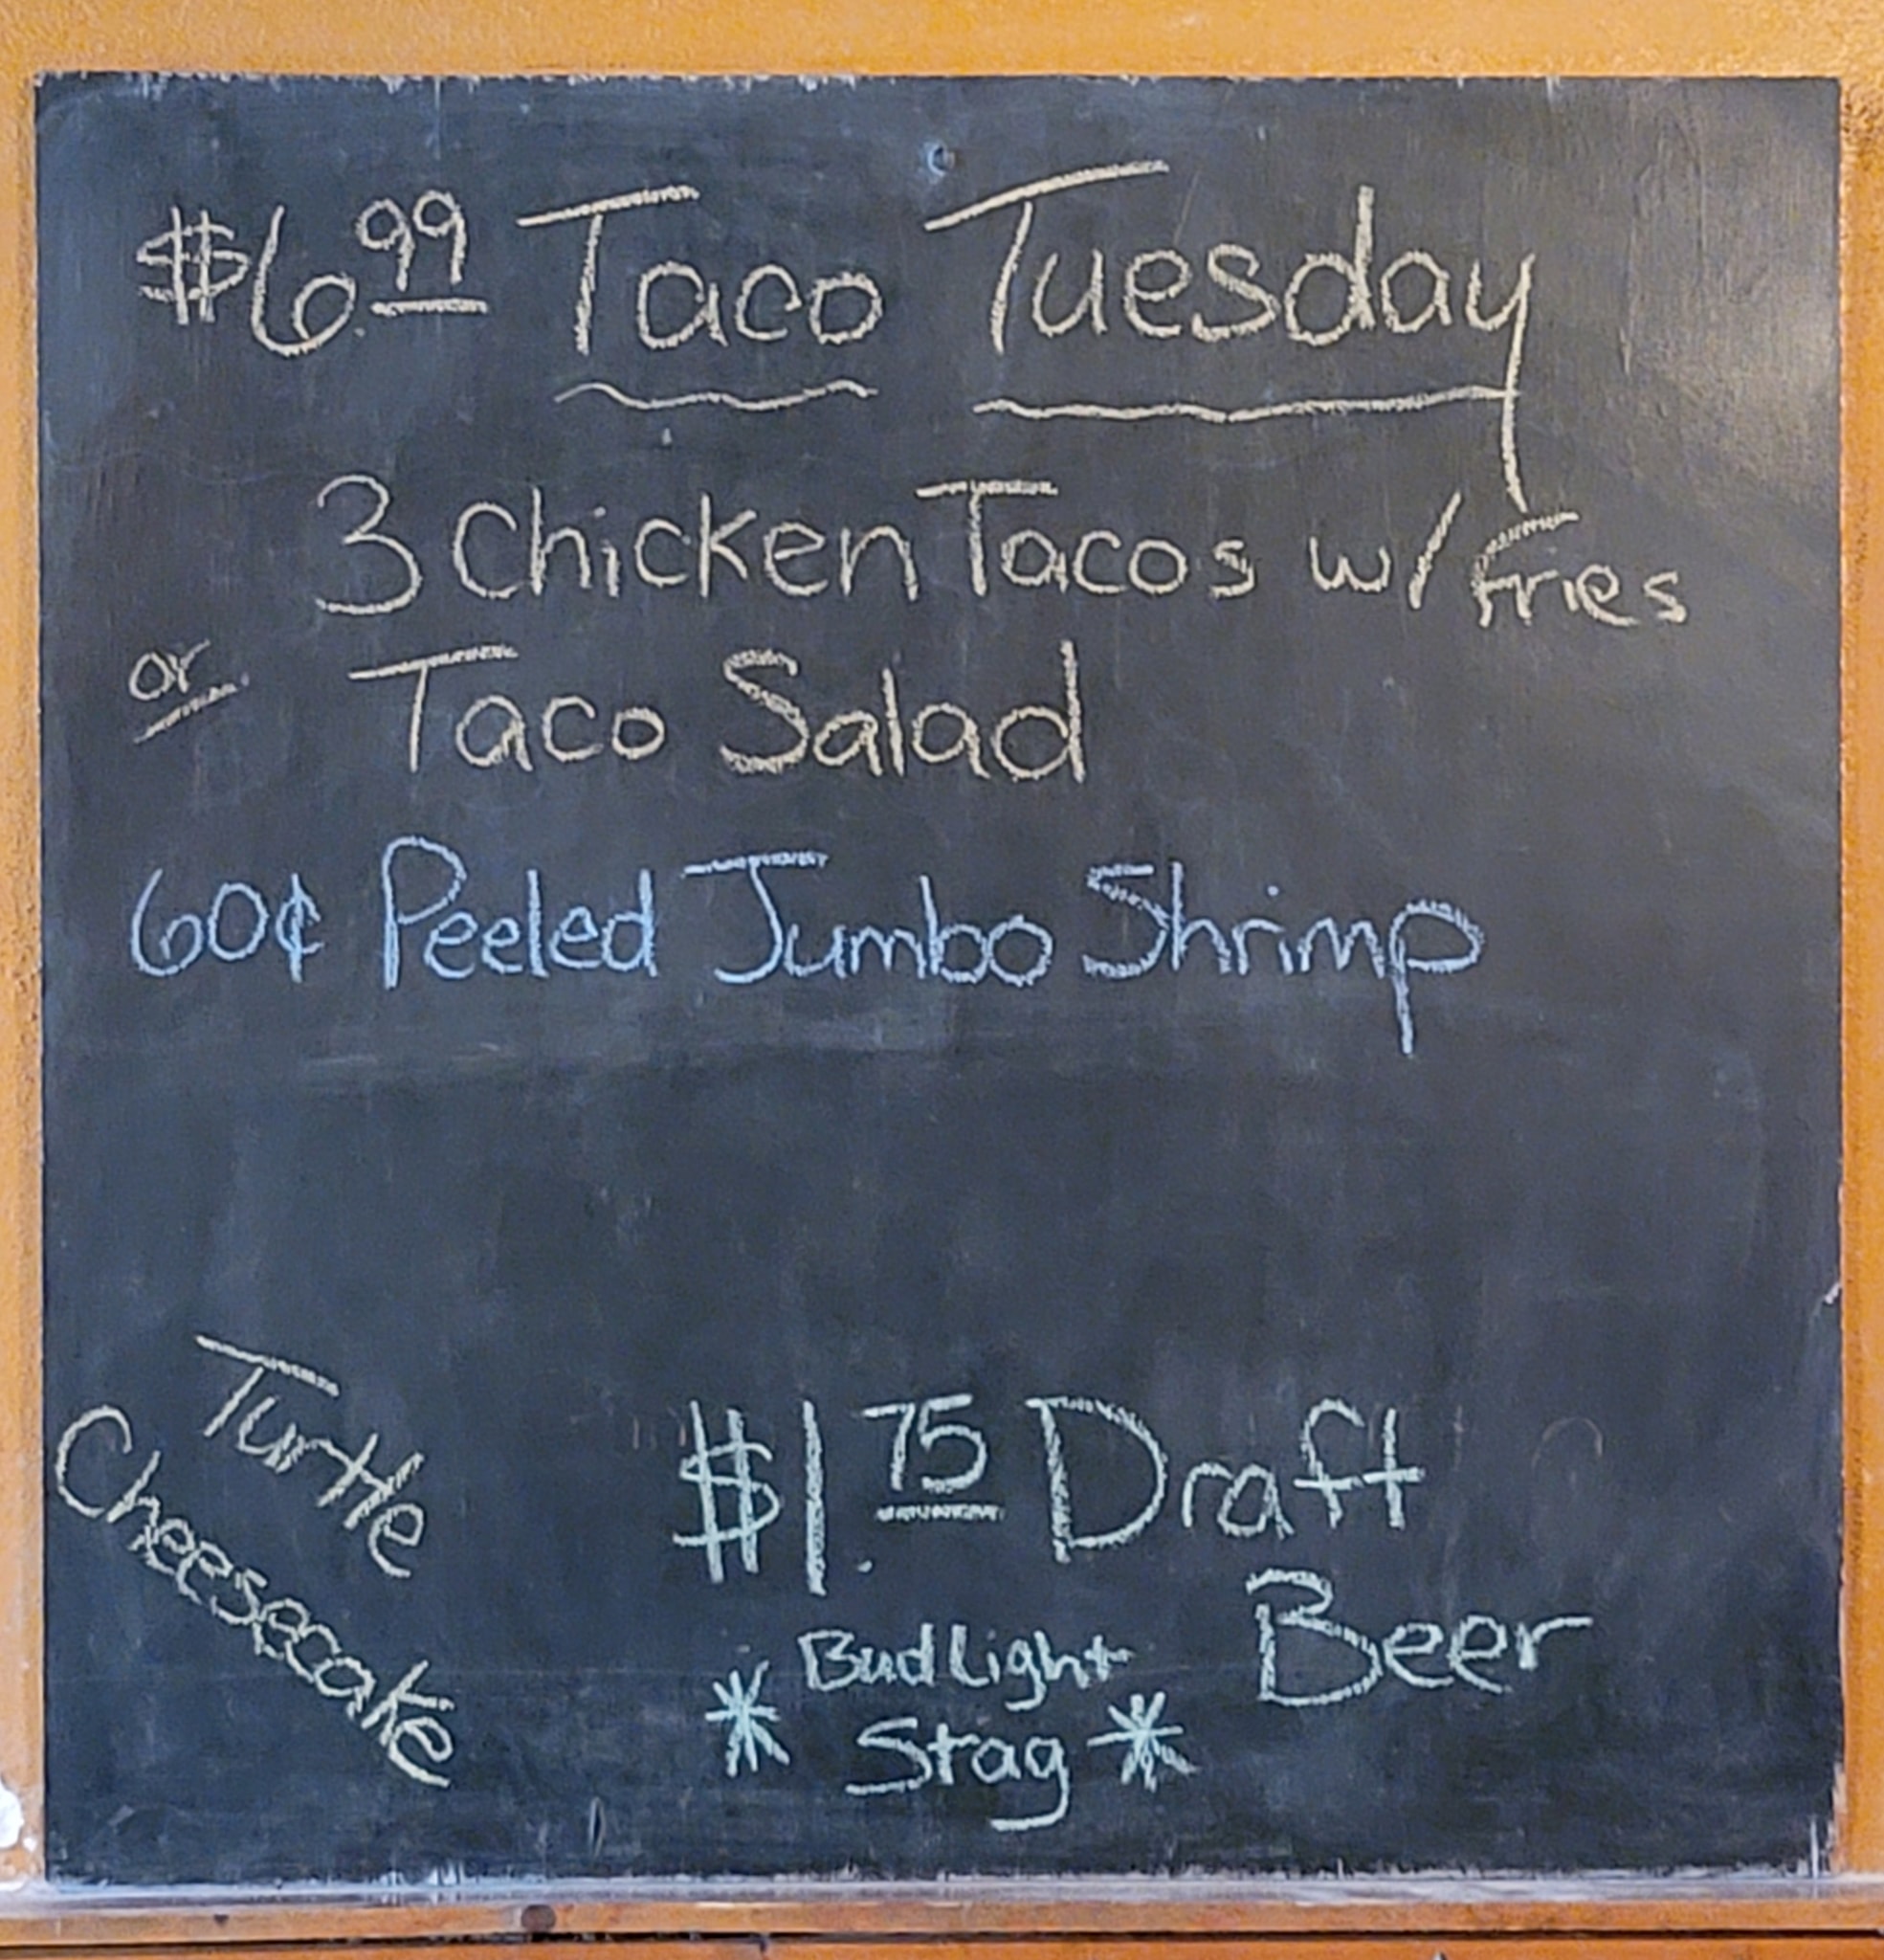 $6.99 Taco Tuesday
3 Chicken Tacos w/ Fries
or Taco Salad
60¢ Peeled Jumbo Shrimp
Turtle
Cheesecake
$1.75 Draft
Beer
* Bud Light
Stag *